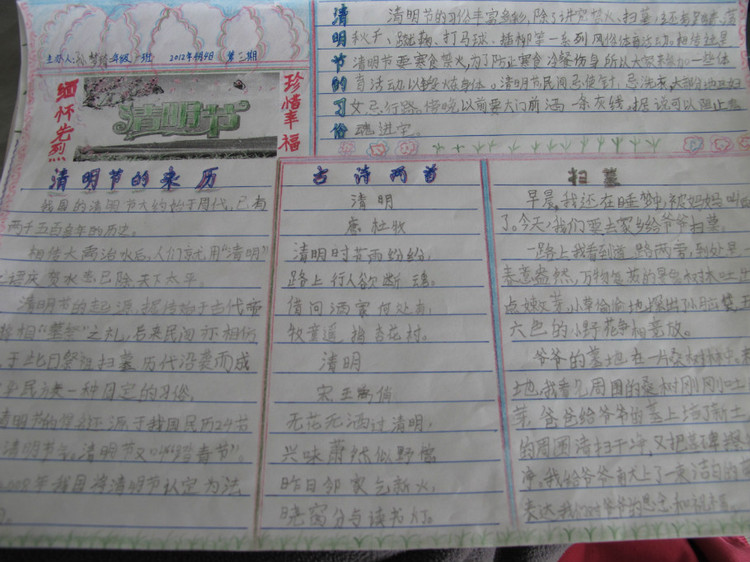 主办人: 年级一班 2012年4月4日 第二期
缅怀先烈
清明节
珍惜幸福
清明节的习俗
清明节的习俗丰富多彩，除了讲究禁火、扫墓，还有踏青、荡
秋千、蹴鞠、打马球、插柳等一系列风俗体育活动。相传这是
清明节要寒食禁火，为了防止寒食冷餐伤身，所以大家来参加一些体
育活动以锻炼身体。清明节民间忌使针，忌洗衣，大部分地区妇
女忌行路。傍晚以前要大门前洒一条灰线，据说可以阻止
进宅。
清明节的来历
我国的清明节大约始于周代，已有
两千五百多年的历史。
相传大禹治水后，人们就用“清明”
之语庆贺水患已除，天下太平。
清明节的起源，据传始于古代帝
将相“墓祭”之礼，后来民间亦相仿
于此日祭祖扫墓，历代沿袭而成
民族一种固定的习俗。
清明节的 源于我国农历24节
清明节气，清明节又叫踏青节。
2008年我国将清明节认定为法
古诗两首
清明
唐 杜牧
清明时节雨纷纷，
路上行人欲断魂。
借问酒家何处有，
牧童遥指杏花村。
清明
宋 王禹偁
无花无酒过清明，
兴味萧然似野僧。
昨日邻家乞新火，
晓窗分与读书灯。
扫墓
早晨，我还在睡梦中，被妈妈叫
了。今天，我们要去家乡给爷爷扫墓。
一路上我看到道路两旁，到处是
春意盎然，万物复苏的景象 树木吐
点嫩芽，小草偷偷地探出了
六色的小野花争相开放。
爷爷的墓地在一片桑树林中，
地，我看见周围的桑树刚刚吐
芽，爸爸给爷爷的墓上填了新土
的周围清扫干净，又把墓碑擦
净，我给爷爷献上了一束洁白的
表达我们对爷爷的思念和